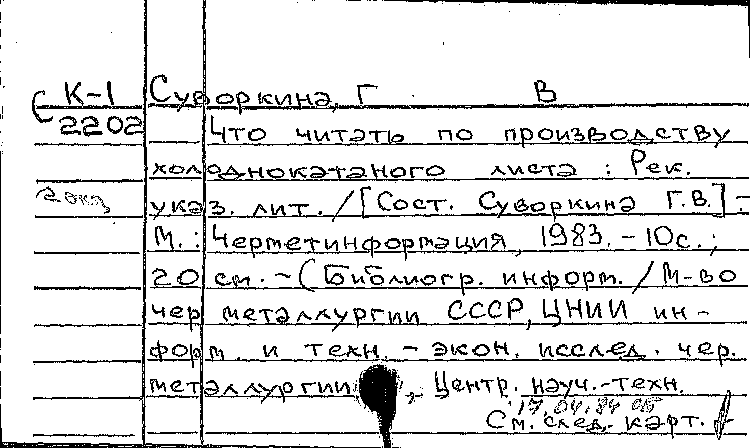 К-1 Суворкина, Г В
2202 Что читать по производству
холоднокатаного листа : Рек.
2 экз указ. лит. / [Сост. Суворкина Г.В.] -
М. : Черметинформация, 1983. - 10 с. ;
20 см. - (Библиогр. информ. / М-во
чер металлургии СССР, ЦНИИ ин-
форм. и техн. - экон. исслед. чер.
металлургии , Центр. науч.-техн.
17.04.84
См. след. карт.